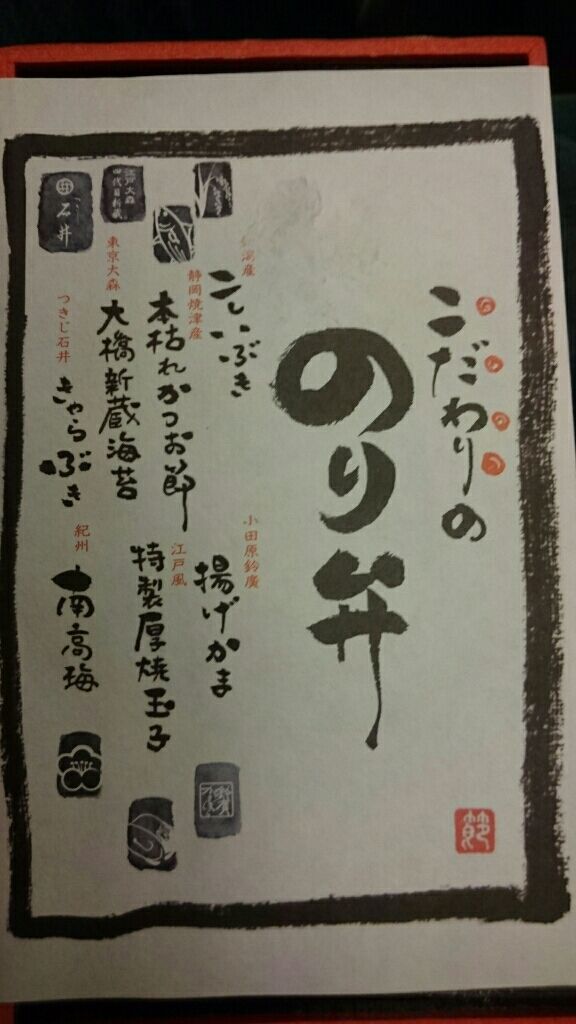 こだわりの
のり弁
新潟産
こしいぶき
静岡焼津産
本枯れかつお節
東京大森
大橋新蔵海苔
つきじ石井
きゃらぶき
小田原鈴廣
揚げかま
江戸風
特製厚焼玉子
紀州
南高梅
江戸大森
四代目新蔵
石井